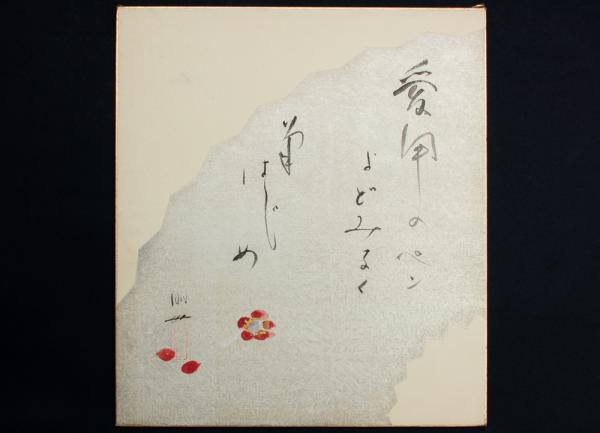 愛用のペン
よどみなく
筆はじめ